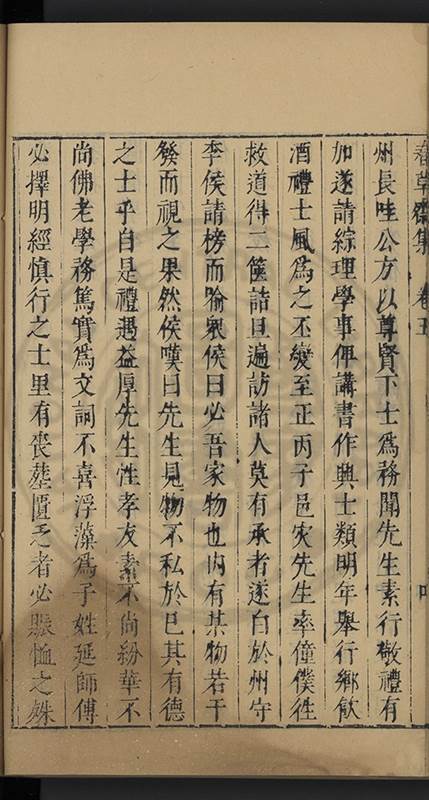 春草齋集 卷五
州長哇公方以尊賢下士爲務聞先生素行敬禮有
加遂請綜理學事俾講書作興士類明年舉行鄉飲
酒禮士風爲之丕變至正丙子邑灾先生率僮僕徃
救道得二篋詰旦遍訪諸人莫有承者遂白於州守
李侯請榜而喻衆侯曰必吾家物也内有某物若干
發而視之果然侯嘆曰先生見物不私於已其有德
之士乎自是禮遇益厚先生性孝友素不尚紛華不
尚佛老學務篤實爲文詞不喜浮藻爲子姓延師傅
必擇明經慎行之士里有喪塟匱乏者必賑恤之姝